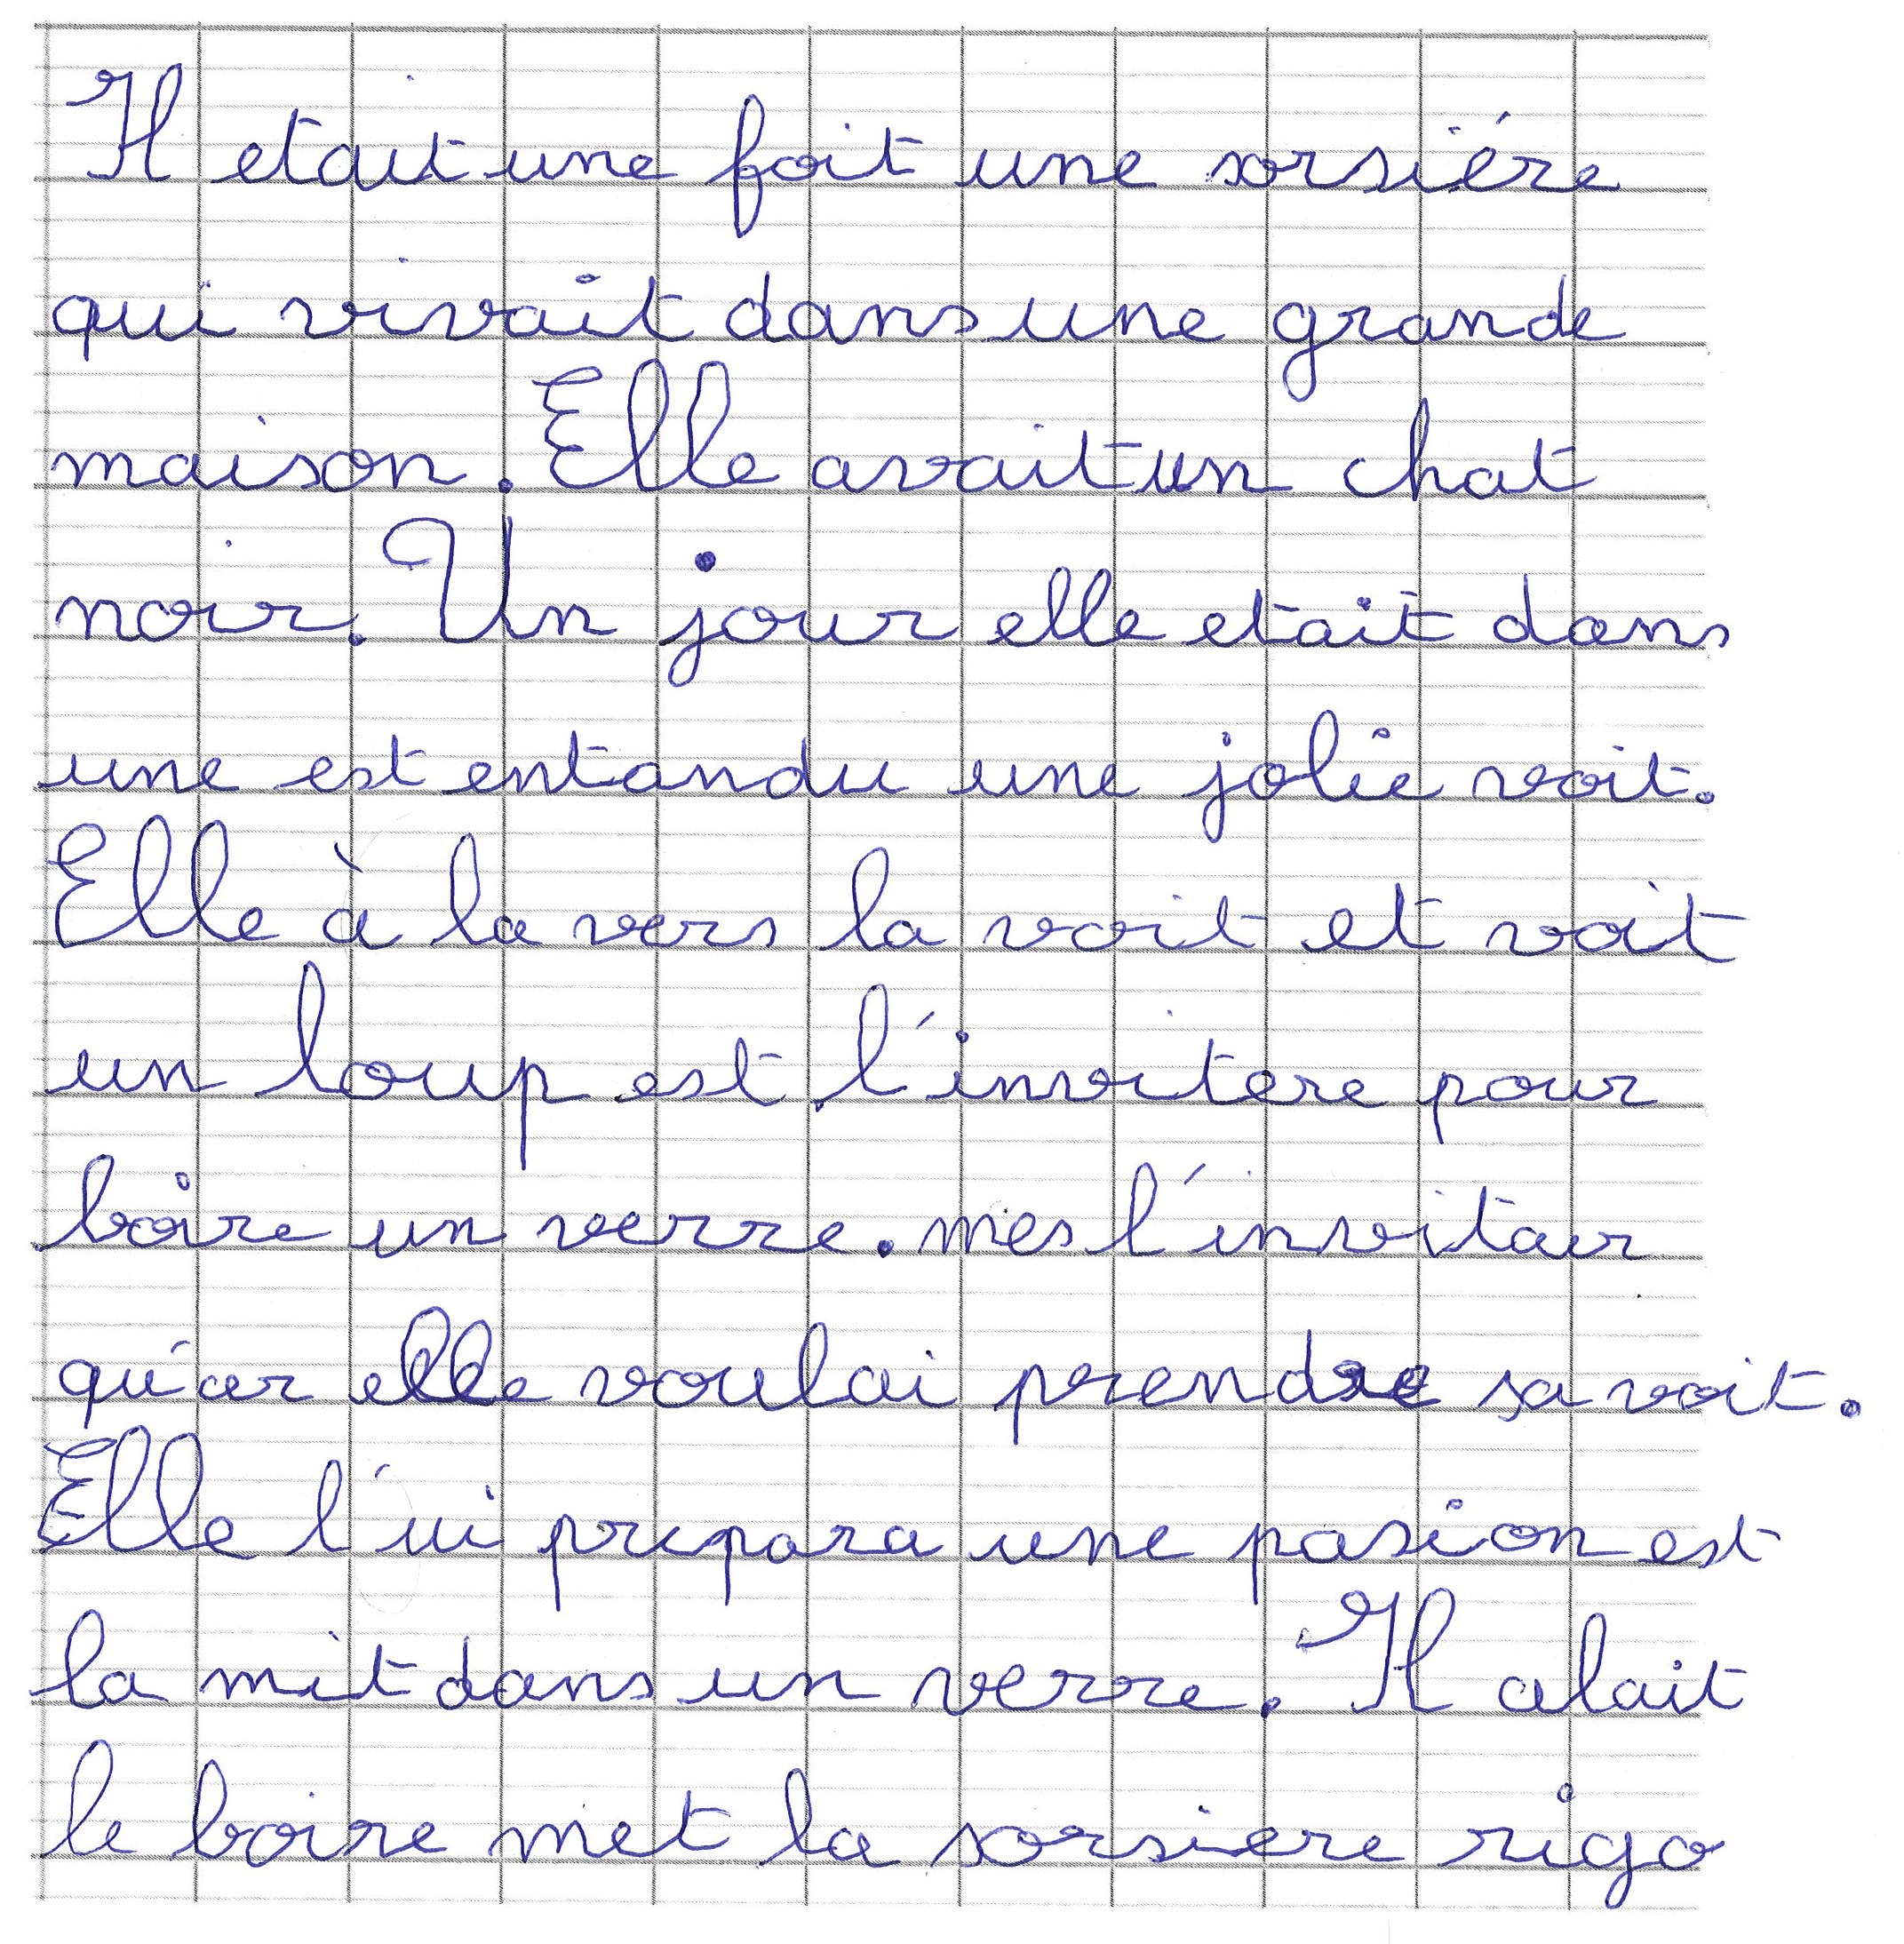 Il etait une foit une sorsiére
qui vivait dans une grande
maison. Elle avait un chat
noir. Un jour elle etait dans
une est entandu une jolie voit.
Elle à la vers la voit et voit
un loup est l'invitere pour
boire un verre. mes l'invitair
qu'ar elle voulai prendre sa voit.
Elle l'ui prepara une pasion est
la mit dans un verre. Il alait
le boire met la sorsiere rigo